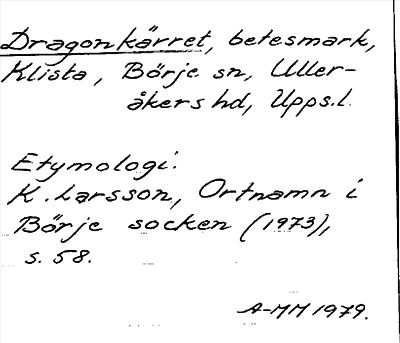 Dragonkärret, betesmark,
Klista, Börje sn, Uller-
åkers hd, Upps.l.
Etymologi.
K. Larsson, Ortnamn i
Börje socken (1973),
s. 58.
A-MM 1979.